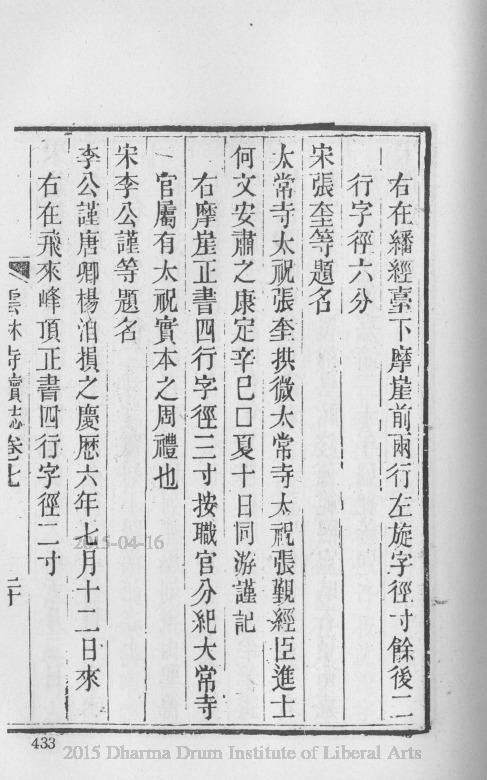 右在繙經臺下摩崖前兩行左旋字徑寸餘後二
行字徑六分
宋張奎等題名
太常寺太祝張奎拱微太常寺太祝張覲經臣進士
何文安肅之康定辛巳□夏十日同游謹記
右摩崖正書四行字徑三寸按職官分紀太常寺
官屬有太祝實本之周禮也
宋李公謹等題名
李公謹唐卿楊洎損之慶歷六年七月十二日來
右在飛來峰頂正書四行字徑二寸
雲林寺續志卷七 二十
2015-04-16
433
2015 Dharma Drum Institute of Liberal Arts